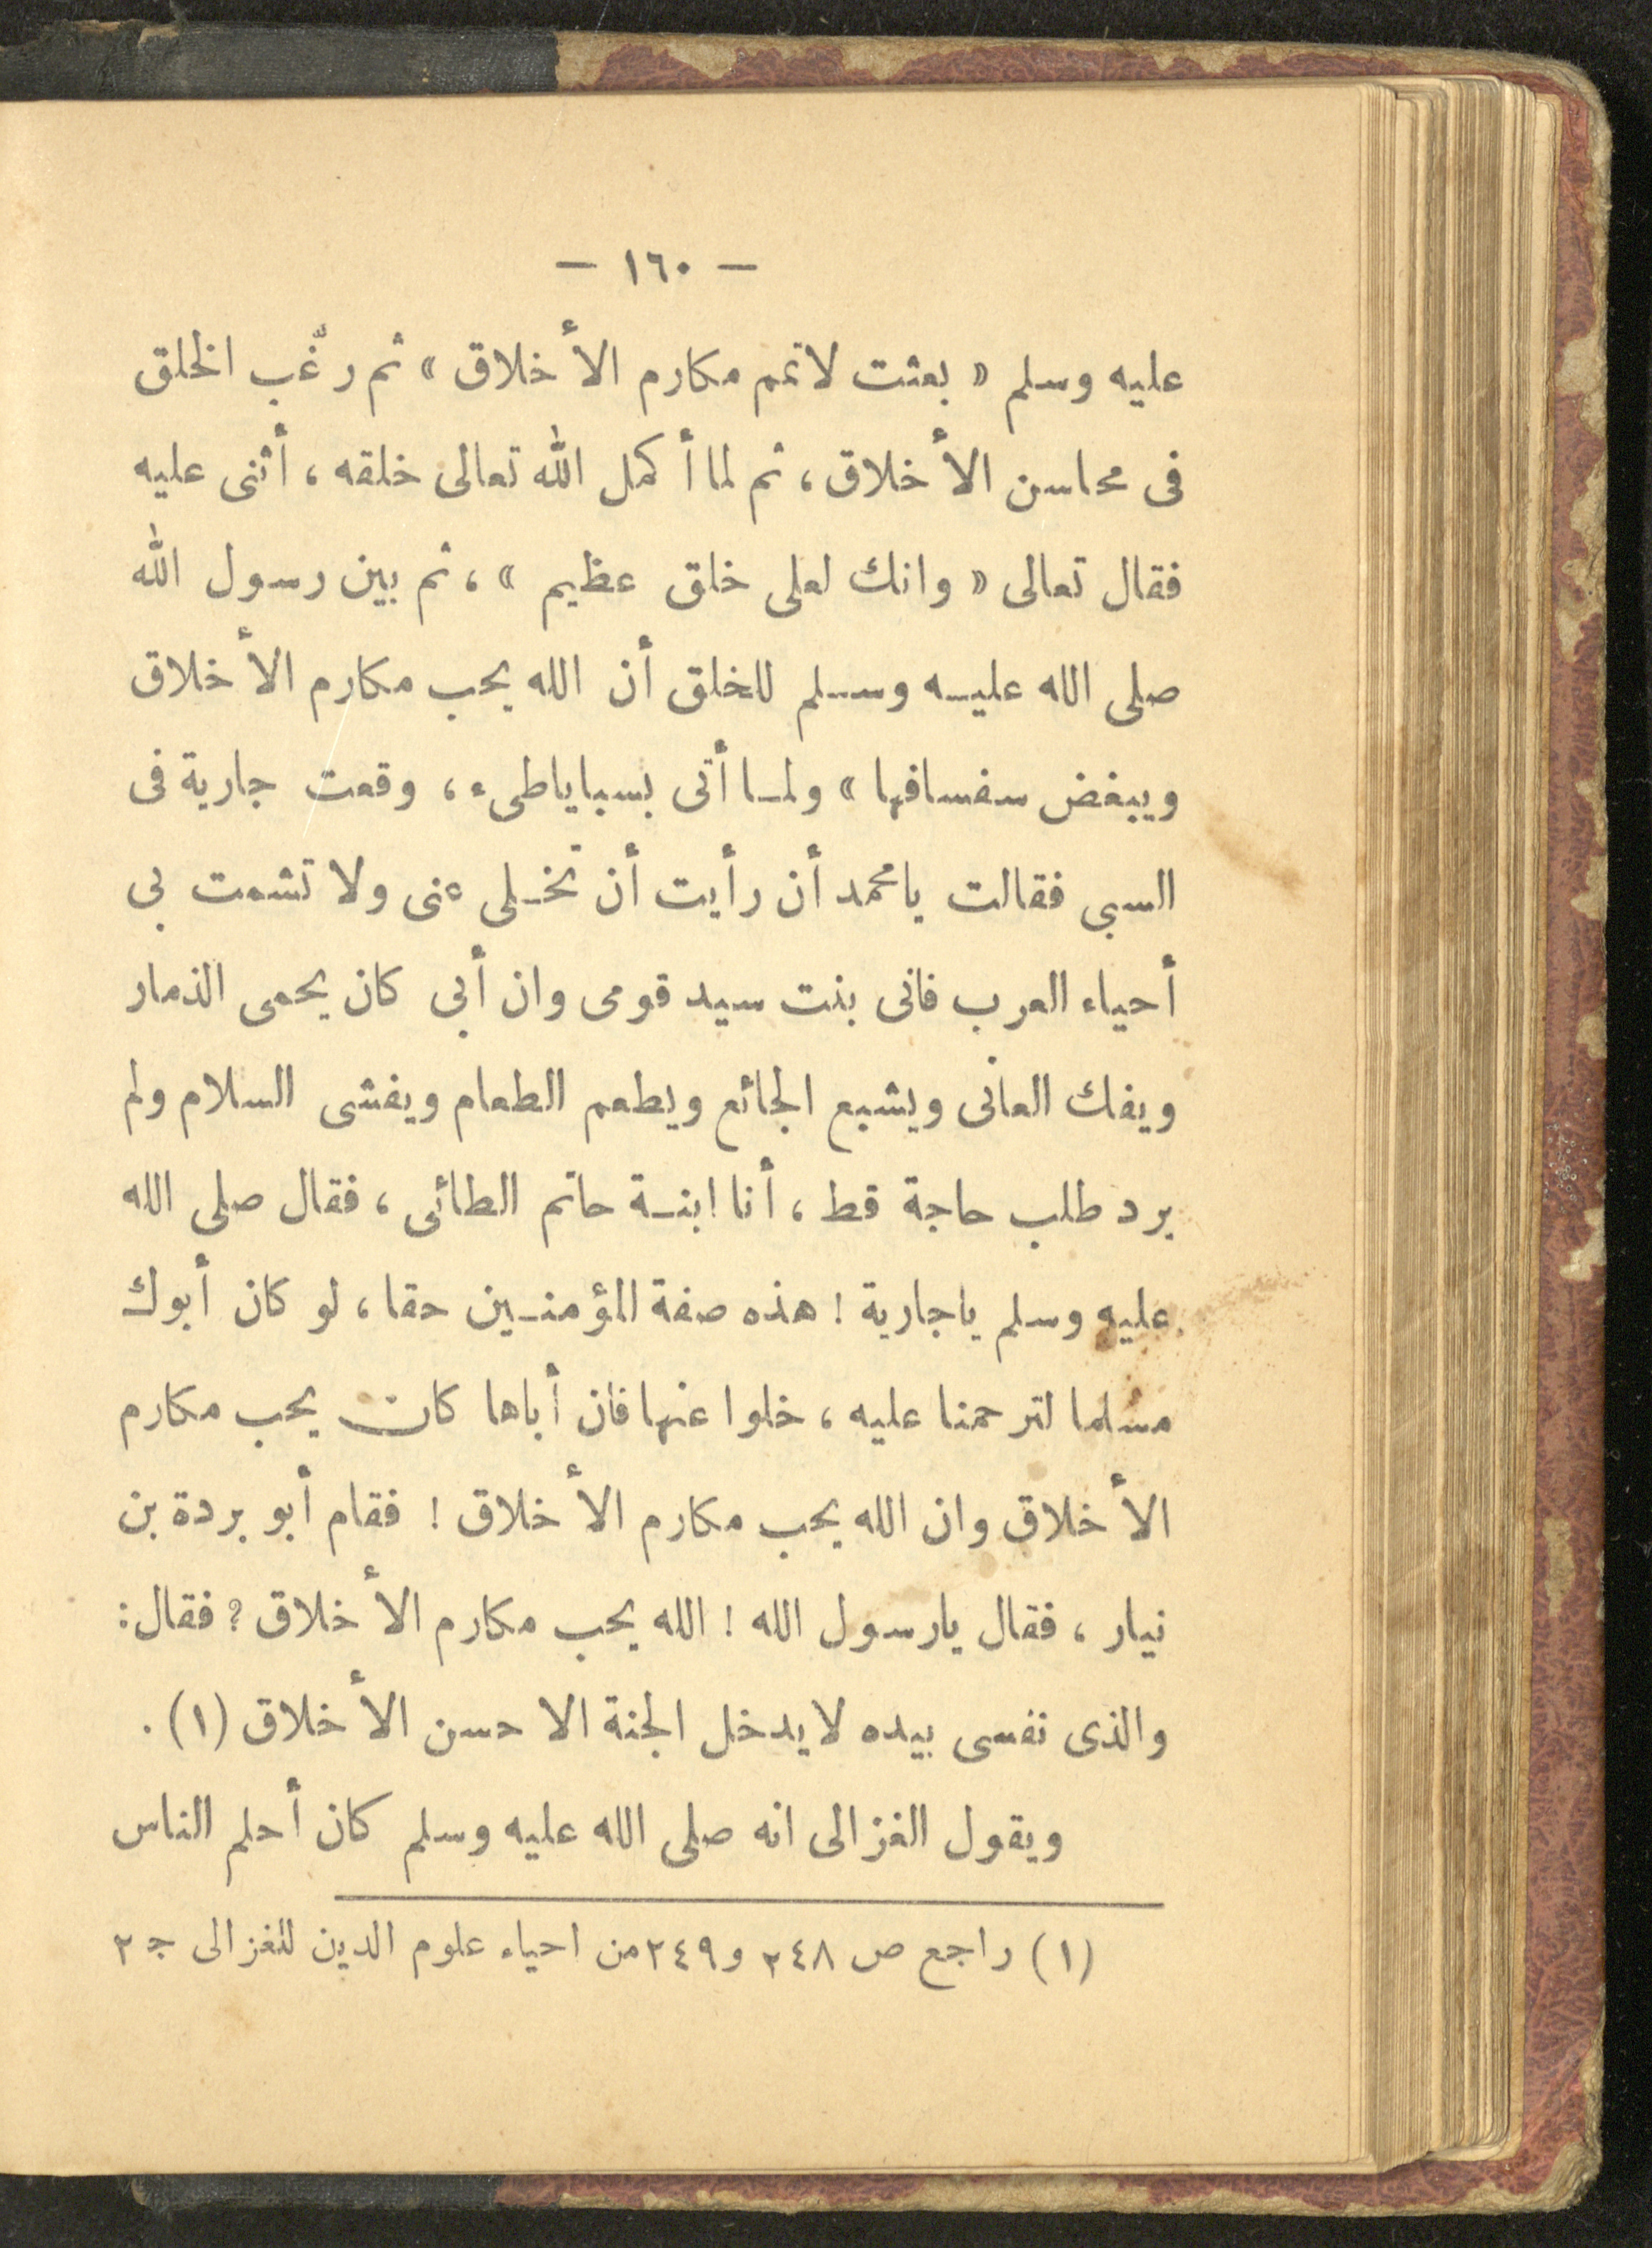 — ١٦٠ —
عليه وسلم « بعثت لاتمم مكارم الأخلاق » ثم رغّب الخلق
فى محاسن الأخلاق ، ثم لما أكمل الله تعالى خلقه ، أثنى عليه
فقال تعالى « وانك لعلى خلق عظيم » ، ثم بين رسول الله
صلى الله عليه وسلم للخلق أن الله يحب مكارم الأخلاق
ويبغض سفسافها » ولما أتى بسبايا طىء ، وقعت جارية فى
السبى فقالت يا محمد أن رأيت أن تخلى عنى ولا تشمت بى
أحياء العرب فانى بنت سيد قومى وان أبى كان يحمى الذمار
ويفك العانى ويشبع الجائع ويطعم الطعام ويفشى السلام ولم
يرد طلب حاجة قط ، أنا ابنة حاتم الطائى ، فقال صلى الله
عليه وسلم يا جارية ! هذه صفة المؤمنين حقا ، لو كان أبوك
مسلما لترحمنا عليه ، خلوا عنها فان أباها كان يحب مكارم
الأخلاق وان الله يحب مكارم الأخلاق ! فقام أبو بردة بن
نيار ، فقال يارسول الله ! الله يحب مكارم الأخلاق ؟ فقال :
والذى نفسى بيده لا يدخل الجنة الا حسن الأخلاق (١) .
ويقول الغزالى انه صلى الله عليه وسلم كان أحلم الناس
(١) راجع ص ٢٤٨ و ٢٤٩ من احياء علوم الدين للغزالى ج ٢